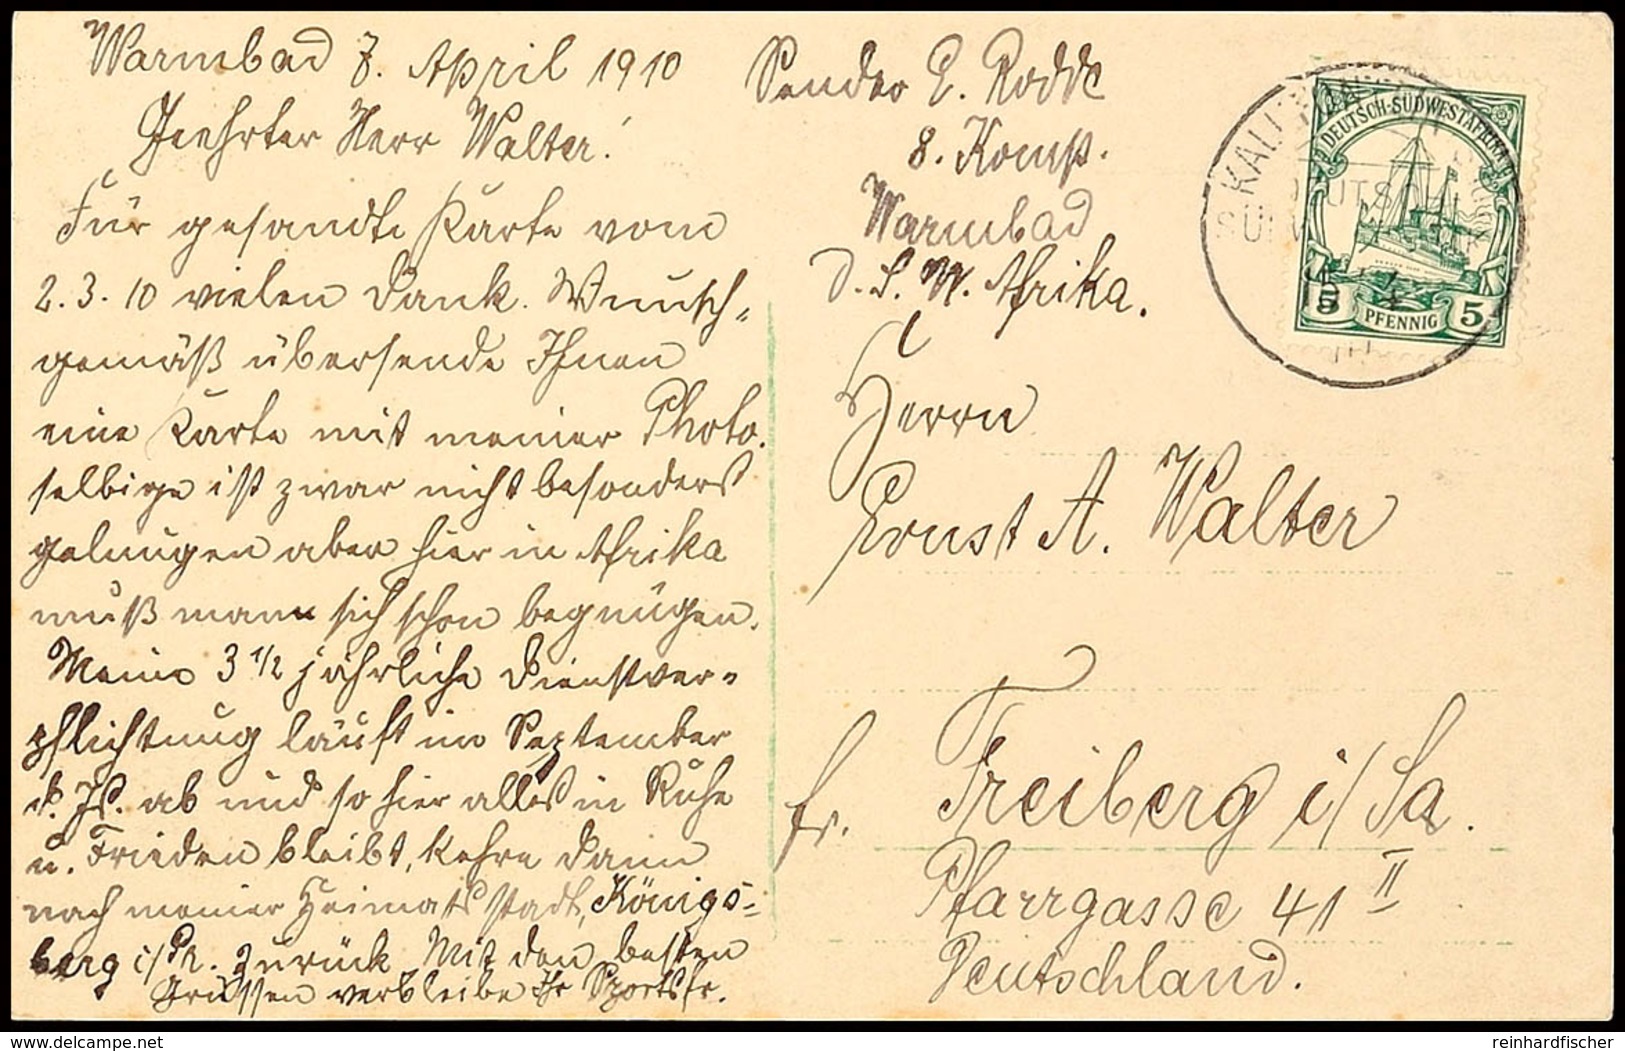 Warmbad 7. April 1910
Geehrter Herr Walter!
Für gesandte Karte vom
2.3.10 vielen Dank. Wunsch-
gemäß übersende Ihnen
eine Karte mit meiner Photo.
selbige ist zwar nicht besonders
gelungen aber hier in Afrika
muß mann sich schon begnügen.
Meine 3 1/2 jährliche Dienstver-
pflichtung läuft im September
d. Js. ab und so hier alles in Ruhe
u. Frieden bleibt, kehre dann
nach meiner Heimats stadt, Königs-
berg i/Pr. zurück. Mit den besten
Grüssen verbleibe Ihr Sportsfr.
Sender E. Rodde
8. Komp.
Warmbad
D. S. W. Afrika.
Herrn
Ernst A. Walter
fr. Freiberg i/Sa.
Pfarrgasse 41 II
Deutschland.
DEUTSCH-SÜDWESTAFRIKA
5 PFENNIG 5
www.delcampe.net
reinhardfischer